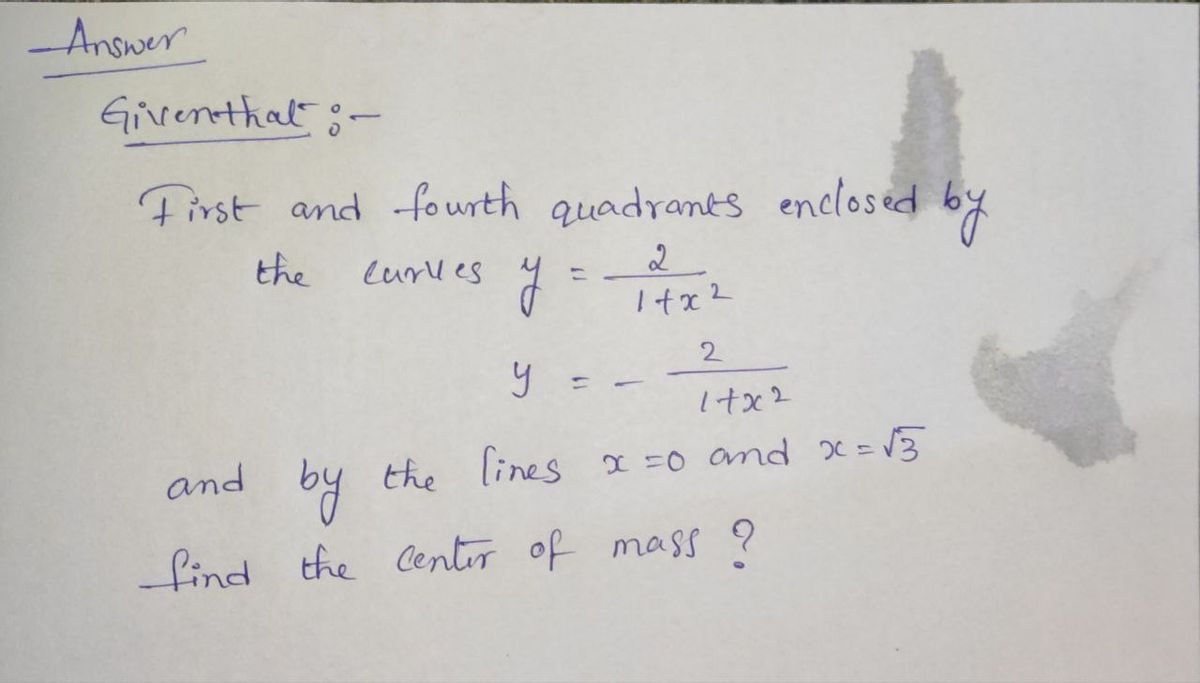 Answer
Giventhat :-
First and fourth quadrants enclosed by
the curves y = 2/1+x²
y = - 2/1+x²
and by the lines x=0 and x=√3
find the center of mass ?